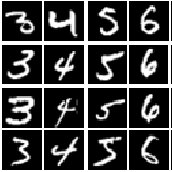 3 4 5 6
3 4 5 6
3 4 5 6
3 4 5 6